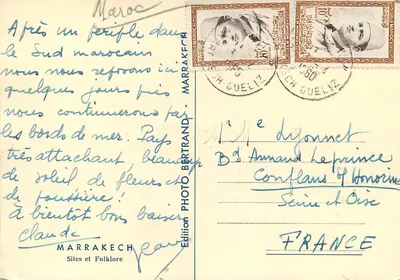 Maroc
Après un périple dans
le Sud marocain
nous nous reposons ici
quelques jours puis
nous continuerons par
les bords de mer. Pays
très attachant, beaucoup
de soleil de fleurs et
de poussière!
à bientôt bons baisers
Claude
MARRAKECH
Sites et Folklore
Edition PHOTO BERTRAND - MARRAKECH
MARRAKECH GUELIZ
10F
10F
Lyonnet
Bd Armand Leprince
Conflans Ste Honorine
Seine et Oise
FRANCE